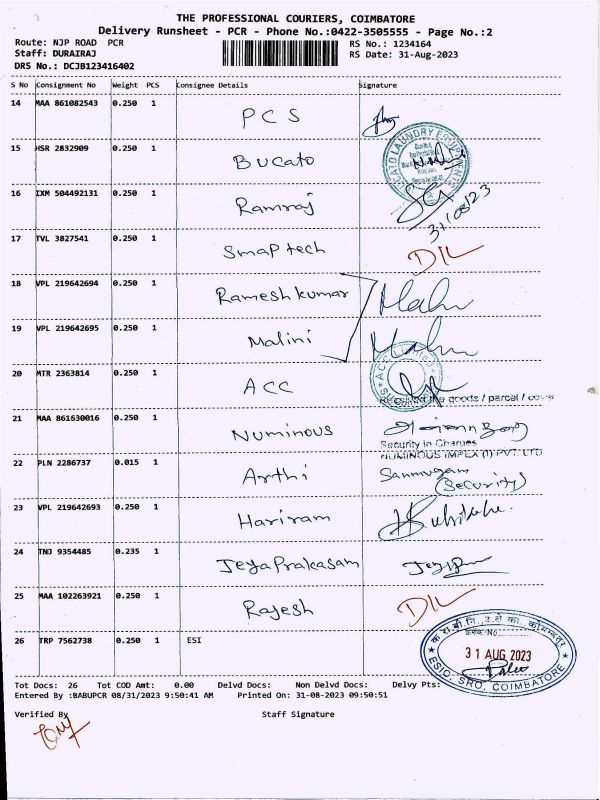 THE PROFESSIONAL COURIERS, COIMBATORE
Delivery Runsheet - PCR - Phone No.:0422-3505555 - Page No.:2
Route: NJP ROAD PCR
RS No.: 1234164
Staff: DURAIRAJ
RS Date: 31-Aug-2023
DRS No.: DCJB123416402
S No Consignment No Weight PCS Consignee Details Signature
14 MAA 861082543 0.250 1 PCS
15 HSR 2832909 0.250 1 Bucato
16 IXM 504492131 0.250 1 Ramraj
31/08/23
17 TVL 3827541 0.250 1 Smap tech D/L
18 VPL 219642694 0.250 1 Ramesh kumar
19 VPL 219642695 0.250 1 Malini
20 MTR 2363814 0.250 1 ACC
the goods / parcel / cover
21 MAA 861630016 0.250 1 Numinous
Security in Charges
NUMINOUS IMPEX (I) PVT. LTD
22 PLN 2286737 0.015 1 Arthi Sanmugam
(Security)
23 VPL 219642693 0.250 1 Hariram
24 TNJ 9354485 0.235 1 JeyaPrakasam
25 MAA 102263921 0.250 1 Rajesh D/L
26 TRP 7562738 0.250 1 ESI
31 AUG 2023
ESIC, SRO, COIMBATORE
Tot Docs: 26 Tot COD Amt: 0.00 Delvd Docs: Non Delvd Docs: Delvy Pts:
Entered By :BABUPCR 08/31/2023 9:50:41 AM Printed On: 31-08-2023 09:50:51
Verified By Staff Signature